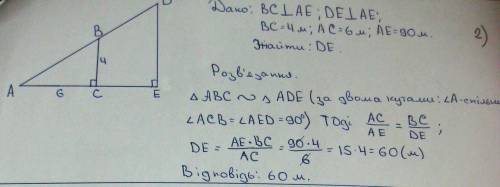 Дано: BC⊥AE; DE⊥AE;
BC=4м; AC=6м; AE=90м.
Знайти: DE.
2)
Розв'язання.
△ABC ∾ △ADE (за двома кутами: ∠A-спільн
∠ACB=∠AED=90°) Тоді AC/AE = BC/DE;
DE = AE·BC/AC = 90·4/6 = 15·4=60(м)
Відповідь: 60 м.
A
B
C
D
E
4
6